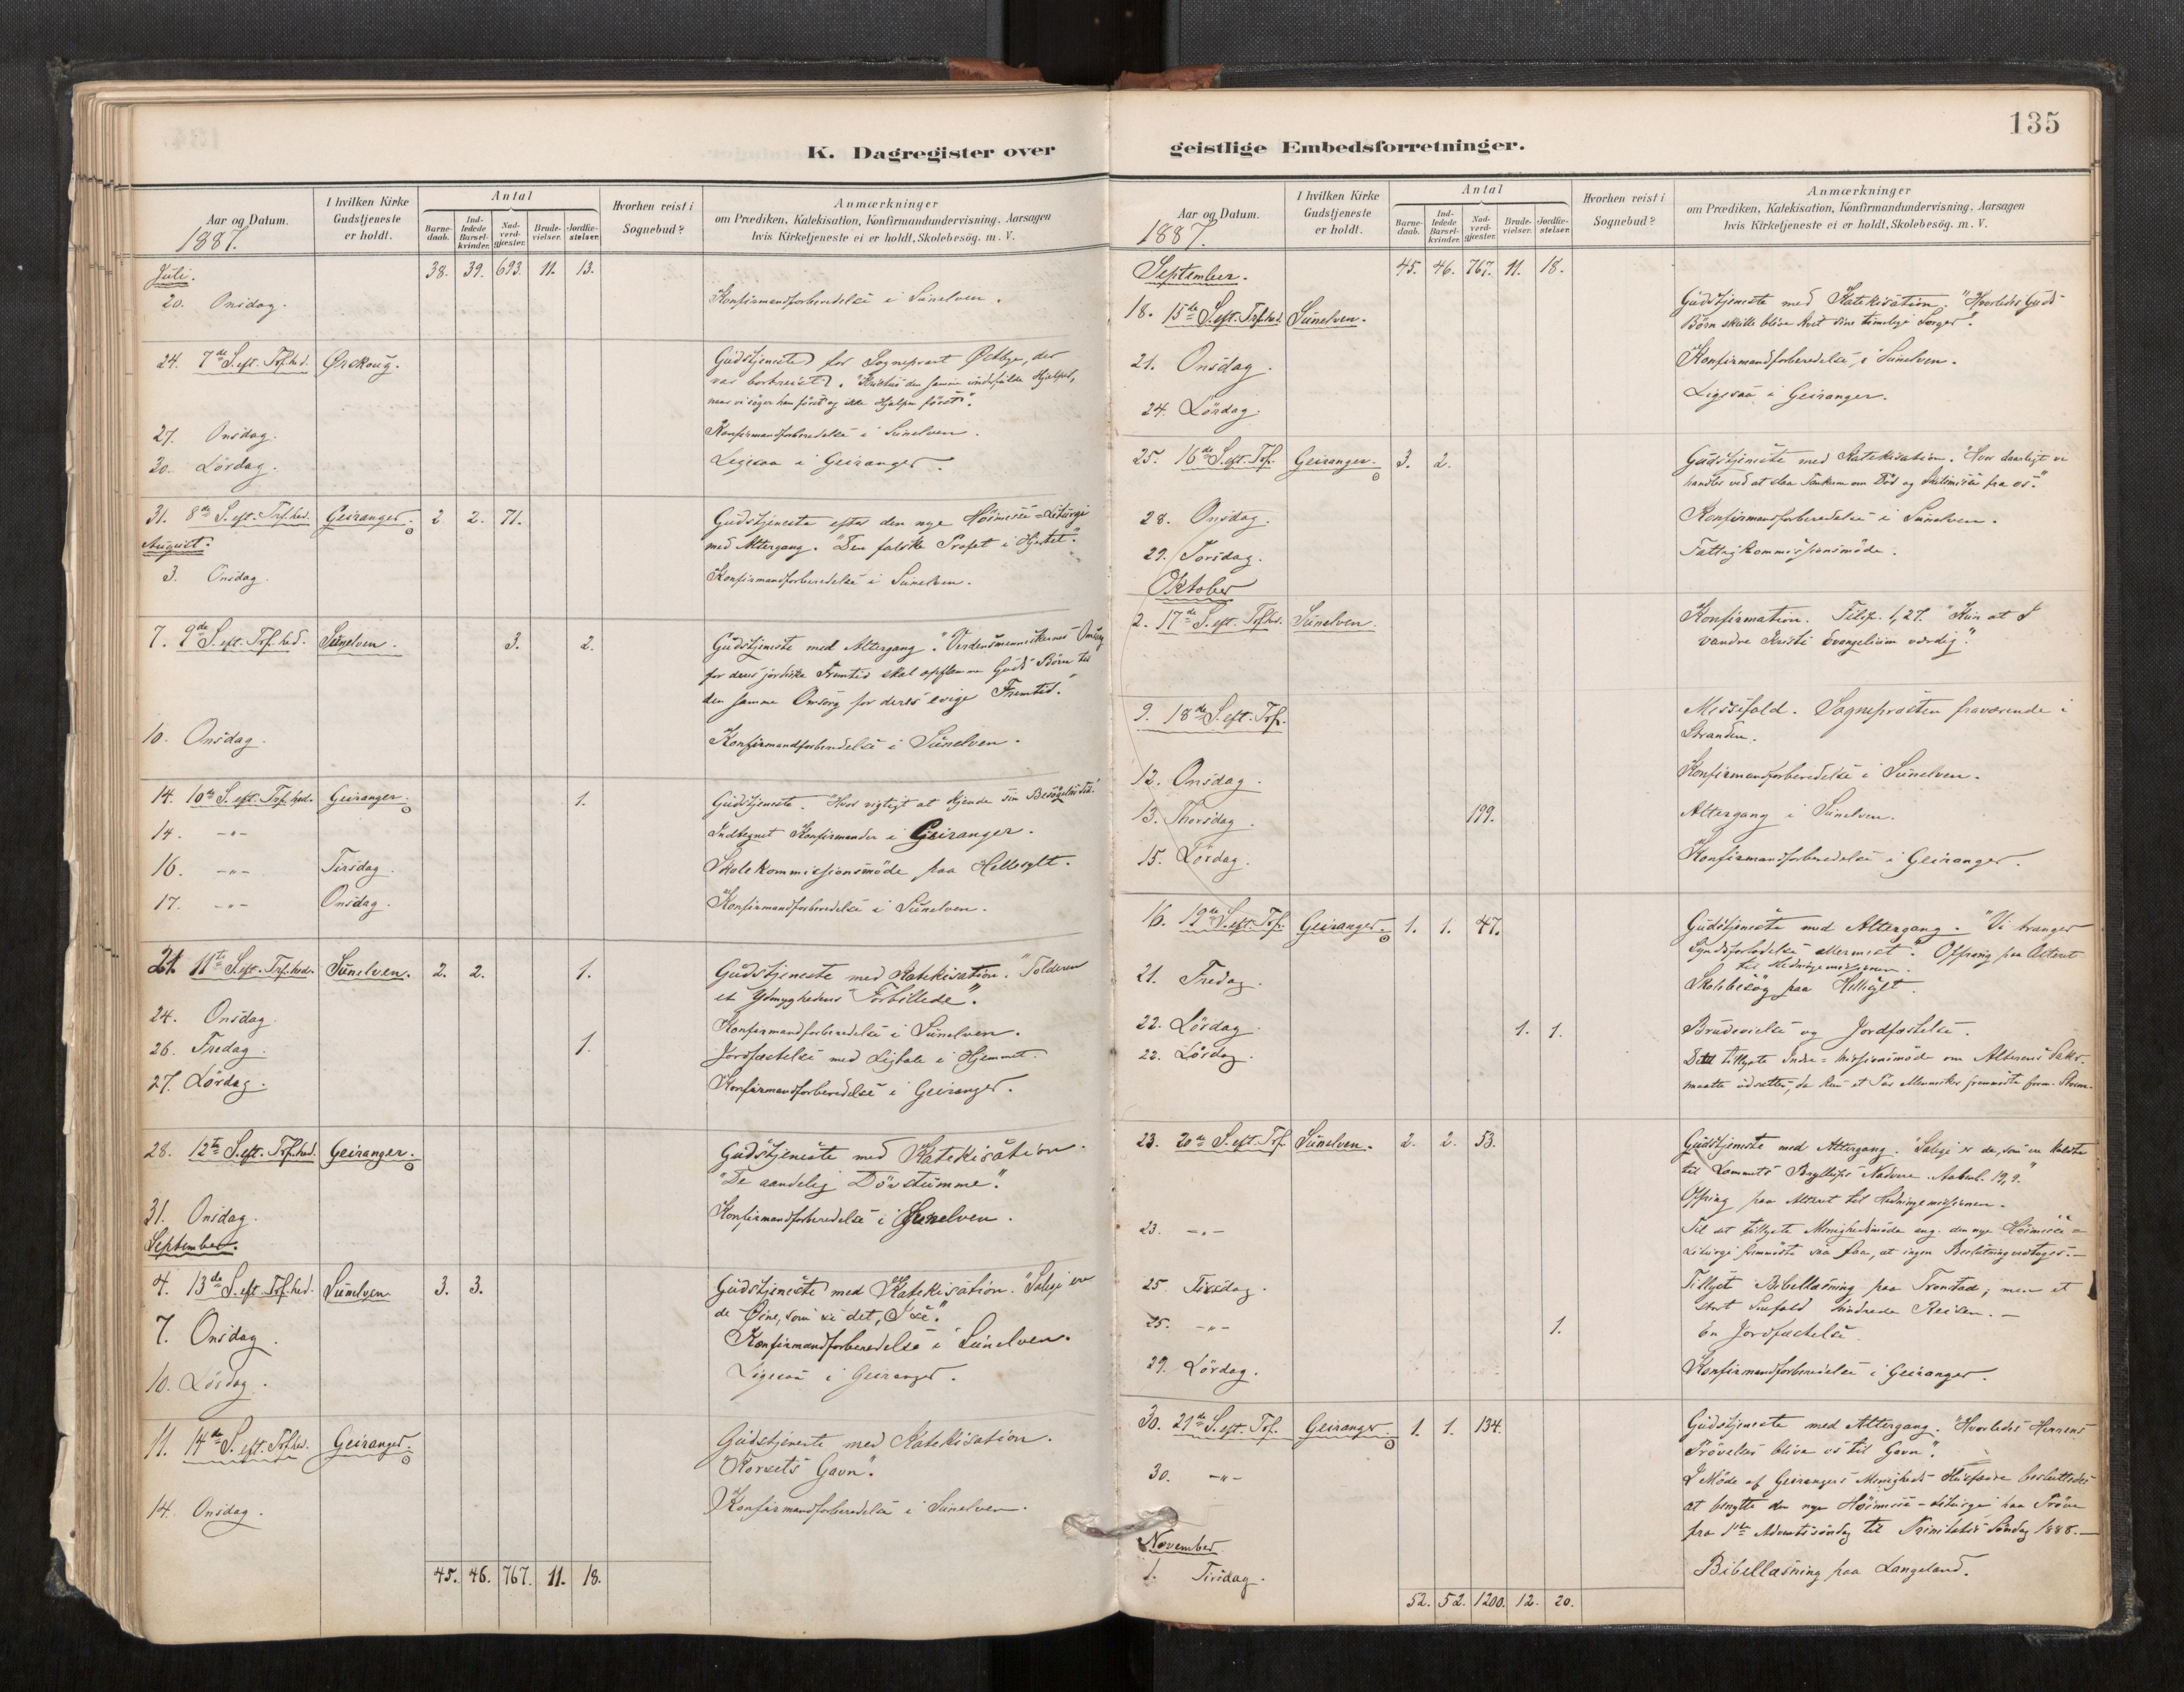 135
K. Dagregister over geistlige Embedsforretninger.
Aar og Datum.
1887.
I hvilken Kirke Gudstjeneste er holdt.
Antal
Barne-daab.
Ind-ledede Barsel-kvinder.
Nad-verd-gjæster.
Brude-vielser.
Jordfæ-stelser.
Hvorhen reist i Sognebud?
Anmærkninger
om Prædiken, Katekisation, Konfirmandundervisning, Aarsagen
hvis Kirketjeneste ei er holdt, Skolebesög. m. V.
Juli. 38. 39. 693. 11. 13.
20. Onsdag. Konfirmandforberedelse i Sunelven.
24. 7de S. eft. Tref.hed. Ørskoug. Gudstjeneste for Sogneprest Østbye, der
var bortreist.
naar vi söger ham först og ikke Hjælpen först".
27. Onsdag. Konfirmandforberedelse i Sunelven.
30. Lördag. Ligesaa i Geiranger.
31. 8de S. eft. Tref.hed. Geiranger. 2 2. 71. Gudstjeneste efter den nye Höimesse-Liturgi
med Altergang. "Den falske Profet i Hjertet".
August.
3. Onsdag. Konfirmandforberedelse i Sunelven.
7. 9de S. eft. Tref.hed. Sunelven. 3. 2. Gudstjeneste med Altergang. "Verdensmenneskernes Omsorg
for deres jordiske Fremtid skal opflamme Guds Börn til
den samme Omsorg for deres evige Fremtid."
10. Onsdag. Konfirmandforberedelse i Sunelven.
14. 10de S. eft. Tref.hed. Geiranger. 1. Gudstjeneste. "Hvor vigtigt at kjende sin Besögelsestid."
14. -"- Indtegnet Konfirmander i Geiranger.
16. -"- Tirsdag. Skolekommissionsmöde paa Hellesylt.
17. -"- Onsdag. Konfirmandforberedelse i Sunelven.
21. 11te S. eft. Tref.hed. Sunelven. 2. 2. 1. Gudstjeneste med Katekisation. "Tolderen
et Ydmyghedens Forbillede".
24. Onsdag. Konfirmandforberedelse i Sunelven.
26. Fredag. 1. Jordfæstelse med Ligtale i Hjemmet.
27. Lördag. Konfirmandforberedelse i Geiranger.
28. 12te S. eft. Tref.hed. Geiranger. Gudstjeneste med Katekisation.
"De aandelig Dövstumme".
31. Onsdag. Konfirmandforberedelse i Sunelven.
September.
4. 13de S. eft. Tref.hed. Sunelven. 3. 3. Gudstjeneste med Katekisation. "Salige ere
de Øine, som se det, I se."
7. Onsdag. Konfirmandforberedelse i Sunelven.
10. Lördag. Ligesaa i Geiranger.
11. 14de S. eft. Tref.hed. Geiranger. Gudstjeneste med Katekisation.
"Korsets Gavn".
14. Onsdag. Konfirmandforberedelse i Sunelven.
45. 46. 767. 11. 18.
Aar og Datum.
1887.
I hvilken Kirke Gudstjeneste er holdt.
Antal
Barne-daab.
Ind-ledede Barsel-kvinder.
Nad-verd-gjæster.
Brude-vielser.
Jordfæ-stelser.
Hvorhen reist i Sognebud?
Anmærkninger
om Prædiken, Katekisation, Konfirmandundervisning, Aarsagen
hvis Kirketjeneste ei er holdt, Skolebesög. m. V.
September. 45. 46. 767. 11. 18.
18. 15de S. eft. Tref.hed. Sunelven. Gudstjeneste med Katekisation. "Hvorledes Guds
Börn skulle blive kvit sine timelige Sorger".
21. Onsdag. Konfirmandforberedelse i Sunelven.
24. Lördag. Ligesaa i Geiranger.
25. 16de S. eft. Tref. Geiranger. 3. 2. Gudstjeneste med Katekisation. "Hvor daarligt vi
handler ved at slaa Tankerne om Död og Skilsmisse fra os."
28. Onsdag. Konfirmandforberedelse i Sunelven.
29. Torsdag. Fattigkommissionsmöde.
Oktober
2. 17de S. eft. Tref.hed. Sunelven. Konfirmation. Filip. 1,27. "Kun at I
vandre Kristi Evangelium værdig".
9. 18de S. eft. Tref. Messefald. Sognepresten fraværende i
Stranden.
12. Onsdag. Konfirmandforberedelse i Sunelven.
13. Thorsdag. 199. Altergang i Sunelven.
15. Lördag. Konfirmandforberedelse i Geiranger.
16. 19de S. eft. Tref. Geiranger. 1. 1. 47. Gudstjeneste med Altergang. "Vi trænger
Syndsforladelse allermest". Offring paa Alteret
til Hedningemissionen.
21. Fredag. Skolebesög paa Hellesylt.
22. Lördag. 1. 1. Brudevielse og Jordfæstelse.
22. Lördag. Det tillyste Indre-Missionsmöde om Alterens Sakr.
maatte udsættes, da kun et Par Mennesker fremmödte form. Storm.
23. 20de S. eft. Tref. Sunelven. 2. 2. 53. Gudstjeneste med Altergang. "Salige er de, som ere kaldte
til Lammets Bryllups Nadvere. Aabenb. 19,9."
Offring paa Alteret til Hedningemissionen.
23. -"- Til et tillyste Menighedsmöde ang. den nye Höimesse-
Liturgi fremmödte saa faa, at ingen Beslutning vedtoges.-
25. Tirsdag. Tillyst Bibellæsning paa Tronstad; men et
stort Snefald hindrede Reisen.-
25. -"- 1. En Jordfæstelse.
29. Lördag. Konfirmandforberedelse i Geiranger.
30. 21de S. eft. Tref. Geiranger. 1. 1. 134. Gudstjeneste med Altergang. "Hvorledes Herrens
Prövelser blive os til Gavn".
30. -"- I Möde af Geirangers Menigheds Husfædre besluttedes
at benytte den nye Höimesse-Liturgi paa Pröve
fra 1ste Adventssöndag til Trinitatis Söndag 1888.-
November
1. Tirsdag. Bibellæsning paa Langeland.
52. 52. 1200. 12. 20.